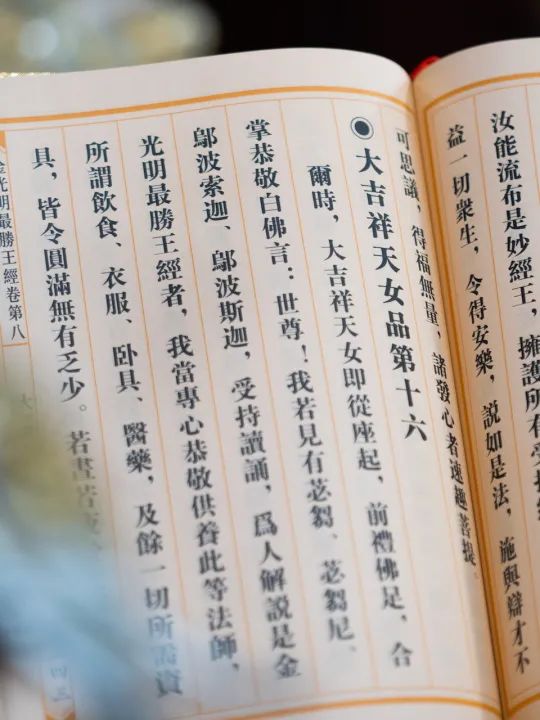 汝能流布是妙經王，擁護所有受持
益一切衆生，令得安樂，説如是法，施與辯才不
可思議，得福無量，諸發心者速趣菩提。
◉大吉祥天女品第十六
爾時，大吉祥天女即從座起，前禮佛足，合
掌恭敬白佛言：世尊！我若見有苾芻、苾芻尼、
鄔波索迦、鄔波斯迦，受持讀誦，爲人解説是金
光明最勝王經者，我當專心恭敬供養此等法師，
所謂飲食、衣服、卧具、醫藥，及餘一切所需資
具，皆令圓滿無有乏少。若晝若夜
金光明最勝王經卷第八
四三